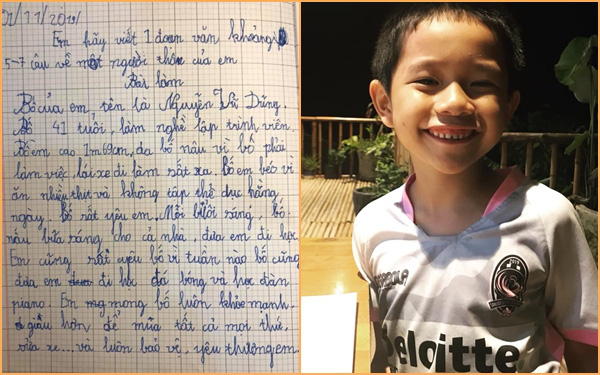 01/11/2019/
Em hãy viết 1 đoạn văn khoảng
5-7 câu về một người thân của em
Bài làm
Bố của em tên là Nguyễn Vũ Dũng.
Bố 41 tuổi, làm nghề lập trình viên.
Bố em cao 1m69cm, da bố nâu vì bố phải
làm việc, lái xe đi làm rất xa. bố em béo vì
ăn nhiều thứ và không tập thể dục hằng
ngày. bố rất yêu em. Mỗi buổi sáng, bố
nấu bữa sáng cho cả nhà, đưa em đi học.
Em cũng rất yêu bố vì tuần nào bố cũng
đưa em đi học đá bóng và học đàn
piano. Em mong bố luôn khỏe mạnh,
giàu hơn để mua tất cả mọi thứ,
rửa xe... và luôn bảo vệ, yêu thương em.
Deloitte